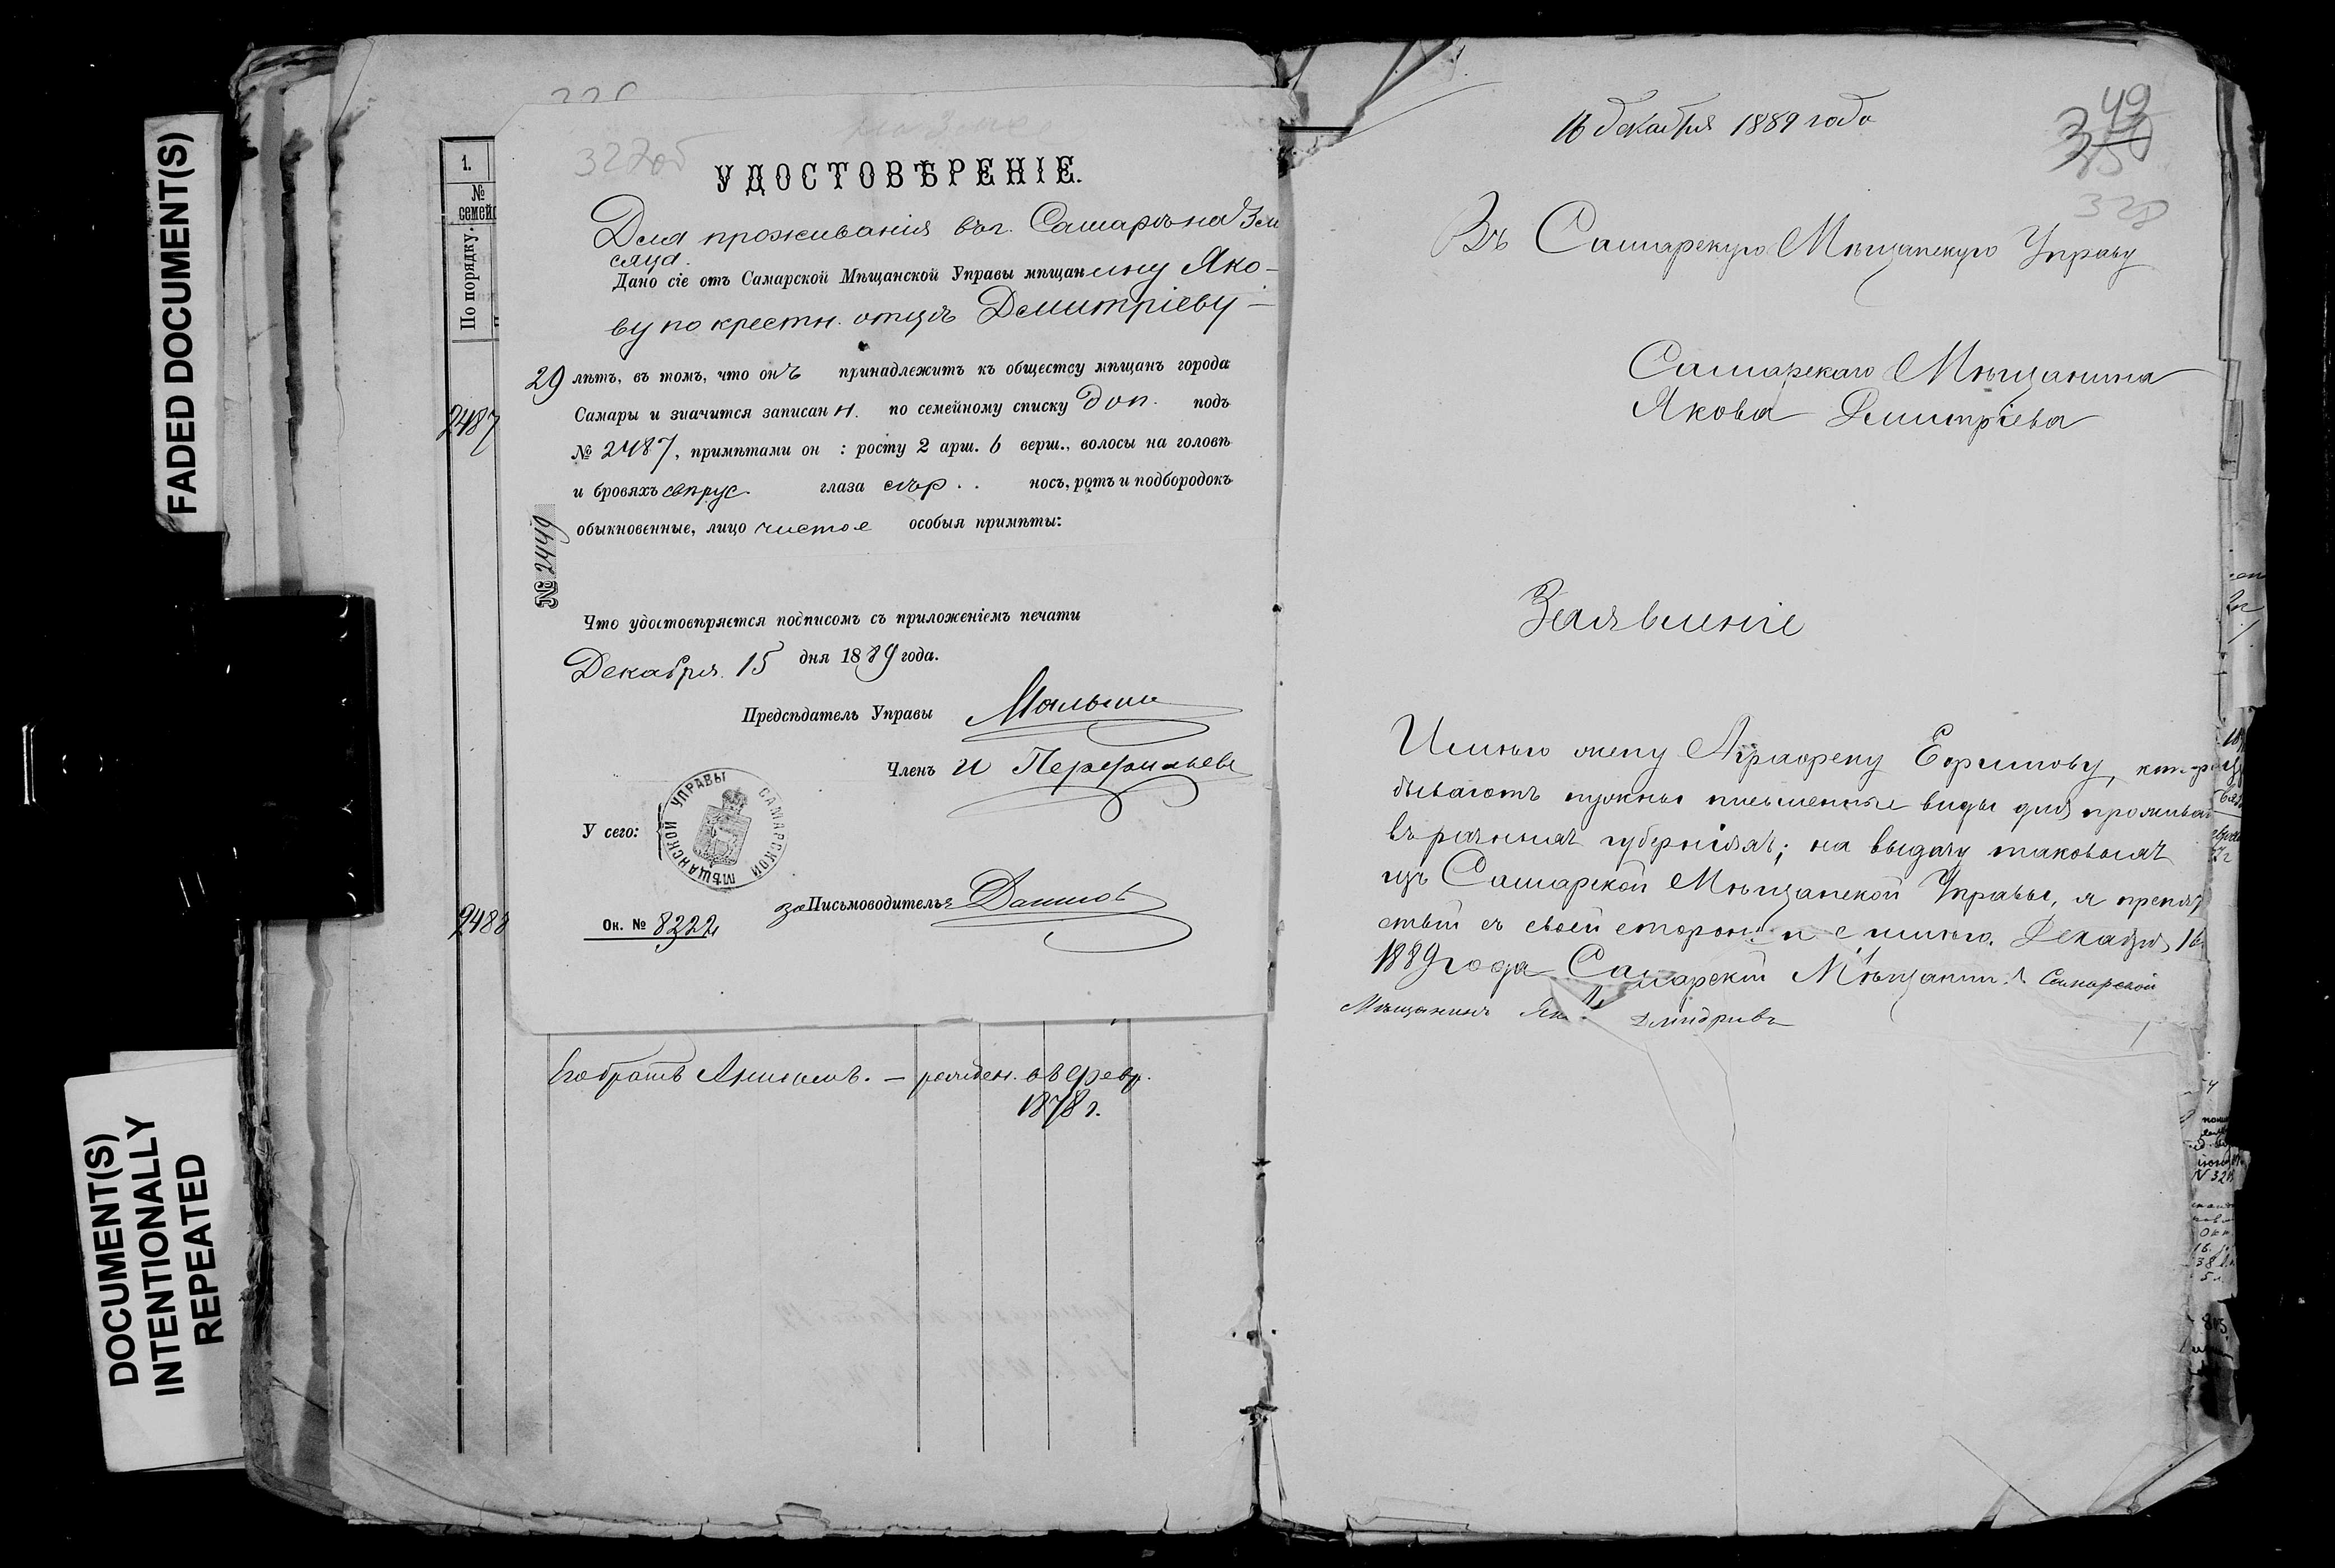 FADED DOCUMENT(S)
DOCUMENT(S)
INTENTIONALLY
REPEATED
1.
№
семей
По порядку.
2487
2488
327об
УДОСТОВѢРЕНІЕ.
Для проживанія въ г. Самарѣ на 3 мѣ
сяца.
Дано сіе отъ Самарской Мѣщанской Управы мѣщанину Яко-
ву по крестн. отцѣ Дмитріеву —
29 лѣтъ, въ томъ, что онъ принадлежитъ къ обществу мѣщанъ города
Самары и значится записан н. по семейному списку доп. подъ
№ 2487, примѣтами он : росту 2 арш. 6 верш., волосы на головѣ
и бровяхъ свѣрус. глаза сѣр . . носъ, ротъ и подбородокъ
обыкновенные, лицо чистое особыя примѣты:
№ 2449
Что удостовѣряется подписомъ съ приложеніемъ печати
Декабря 15 дня 1889 года.
Предсѣдатель Управы
Членъ И Перфильевъ
У сего:
САМАРСКОЙ МѢЩАНСКОЙ УПРАВЫ
за Письмоводителя
Ок. № 8222
Его братъ — рожден. въ февр.
1878 г.
16 декабря 1889 года
49
350
328
Въ Самарскую Мѣщанскую Управу
Самарскаго Мѣщанина
Якова Дмитріева
Заявленіе
Имѣю жену Аграфену Ефимову,
бываютъ нужны письменные виды для прожива
въ разныхъ губерніяхъ; на выдачу таковыхъ
изъ Самарской Мѣщанской Управы, я препят
ствій съ своей стороны не имѣю. Декабря 16
1889 года Самарскій Мѣщанинъ Самарской
Мѣщанинъ Як Дмидривъ